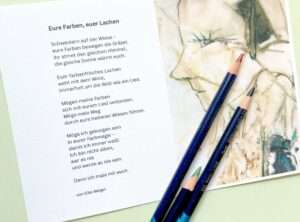 Eure Farben, euer Lachen
Schwestern auf der Wiese –
eure Farben bewegen die Gräser.
Ihr atmet den gleichen Himmel,
die gleiche Sonne wärmt euch.
Euer farbenfrisches Lachen
weht mit dem Wind,
umarmt die Welt wie ein Lied.
Mögen meine Farben
sich mit eurem Lied verbinden.
Möge mein Weg
durch eure heiteren Wiesen führen.
Möge ich geborgen sein
in eurer Farbmagie –
denn ich
Ich bin nicht allein,
war es nie
und werde es nie sein.
Denn ich male mit euch.
von Elke